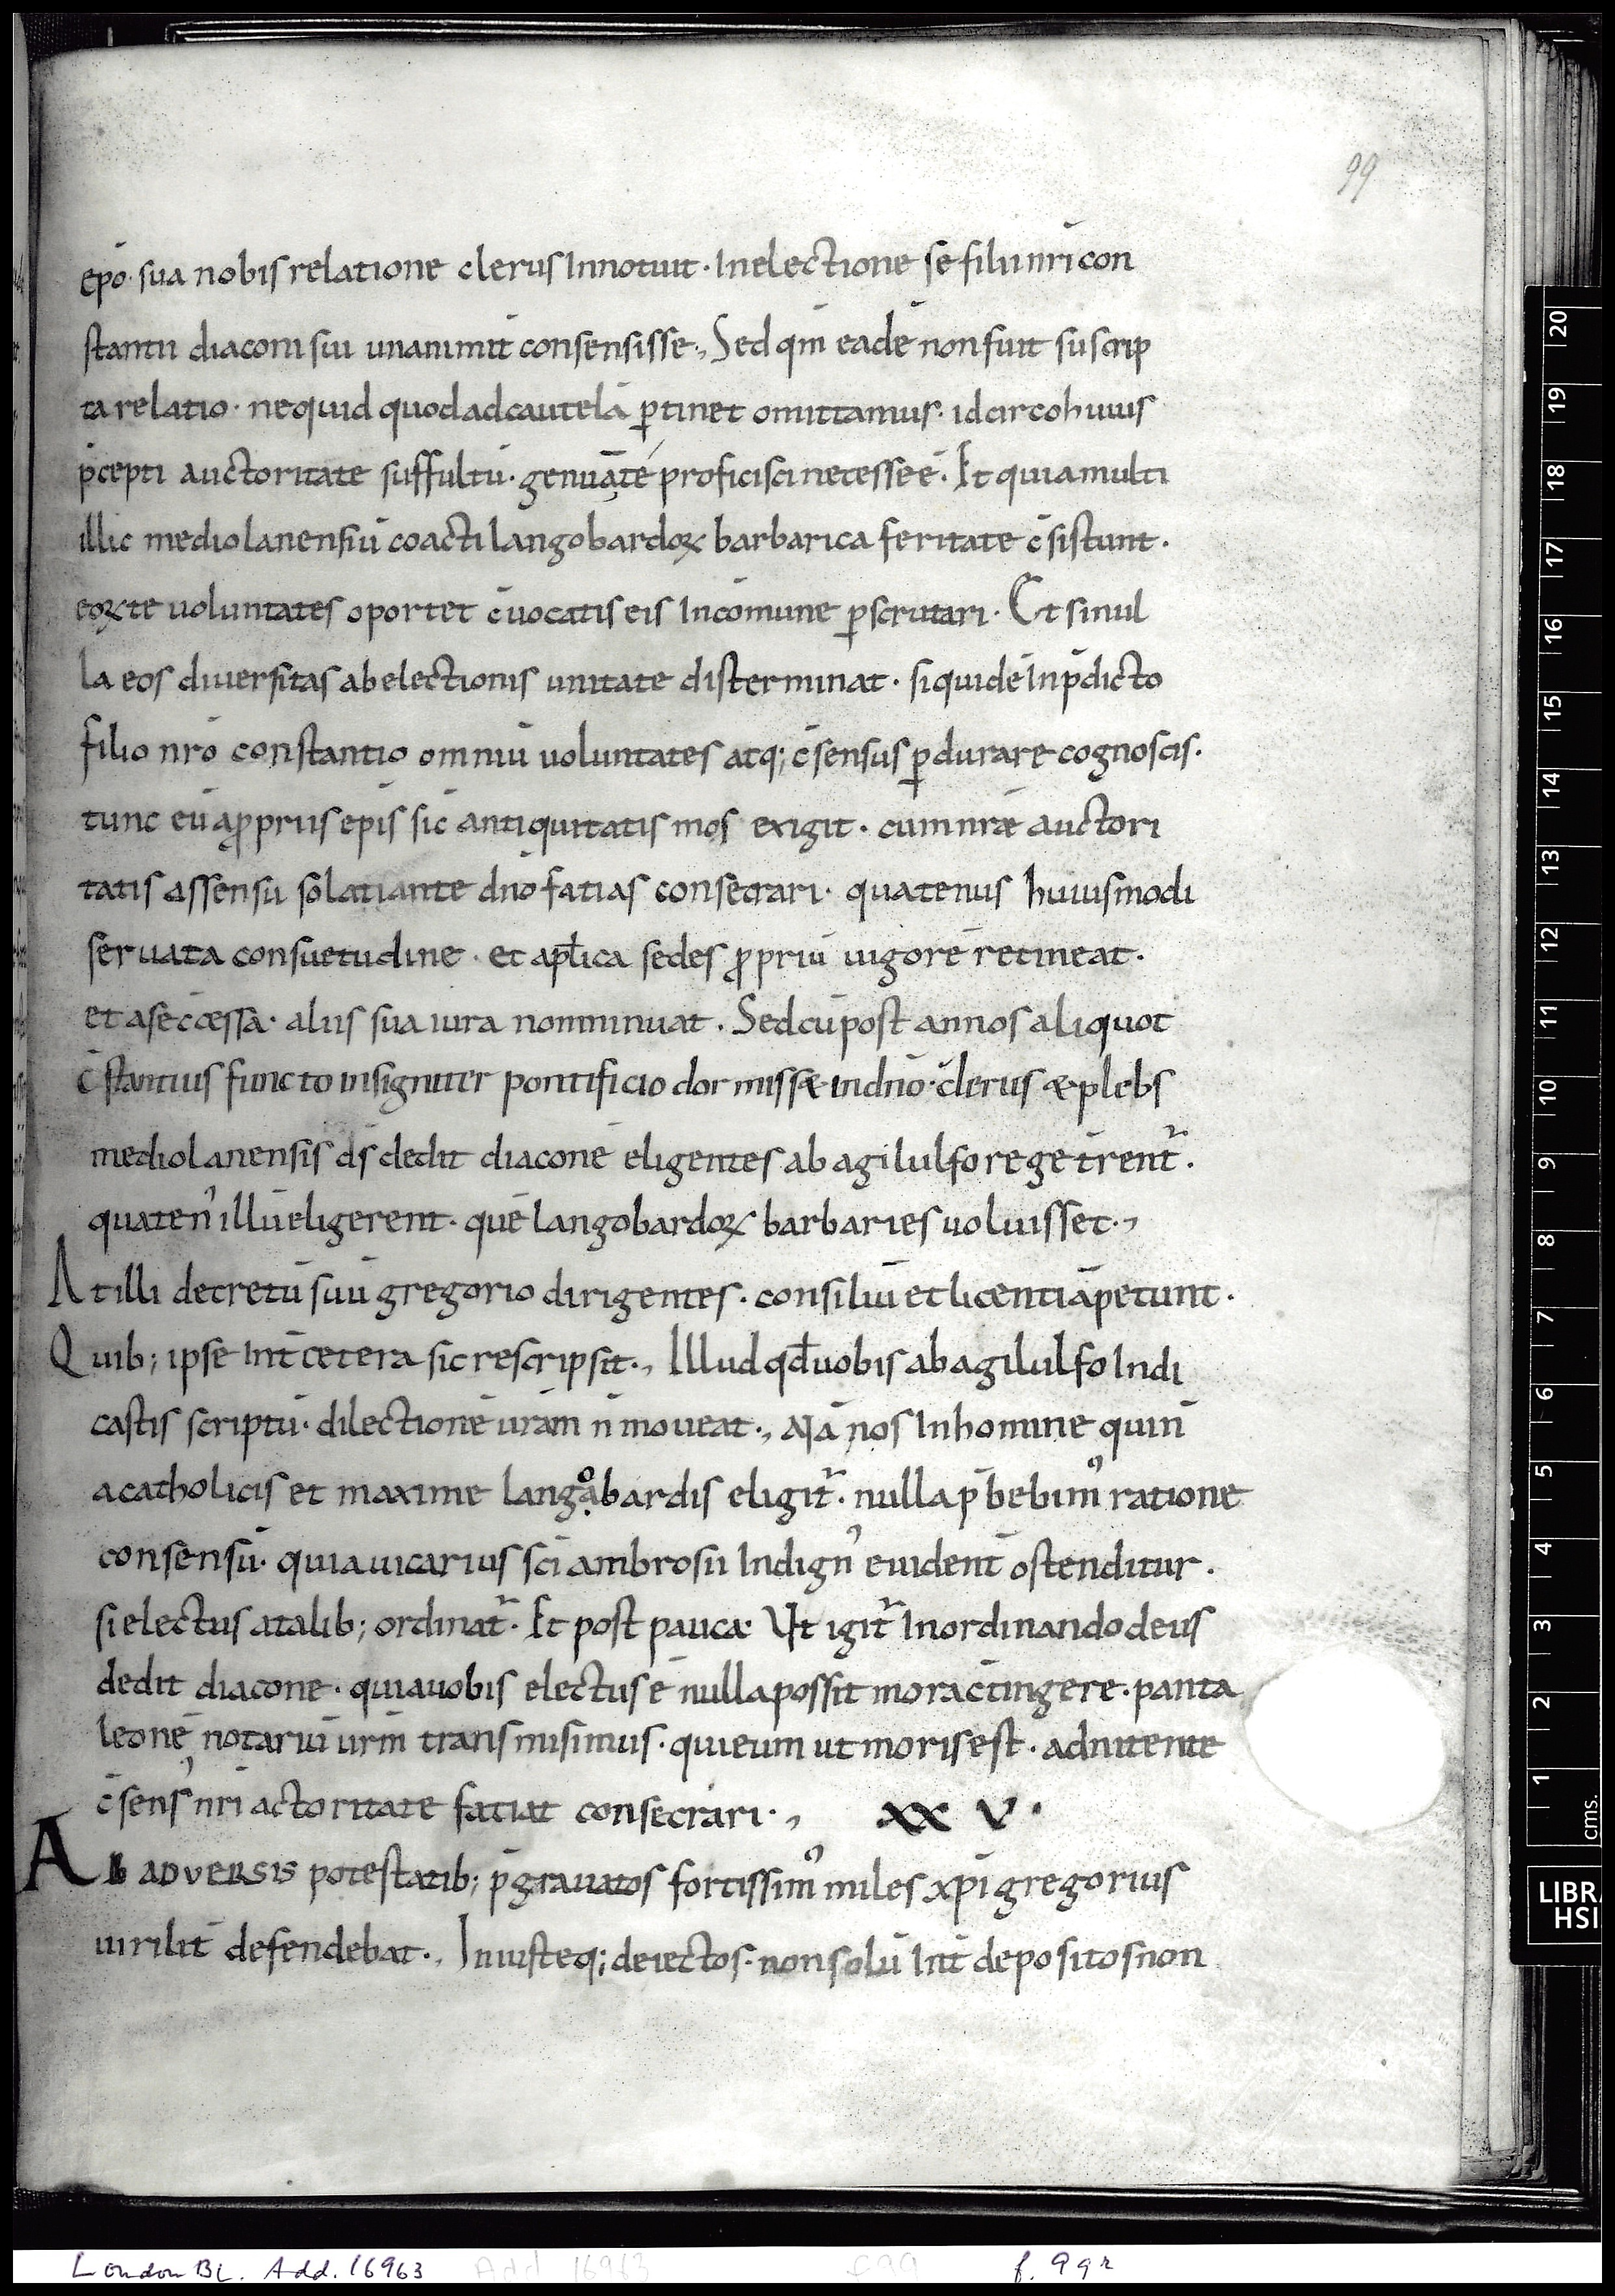 99
epō· sua nobis relatione clerus Innotuit· Inelectione se filii nr̄i con
stantii diaconi sui unanimit̄ consensisse·, Sed qm̄ eadē non fuit suscrip
ta relatio· nequid quod ad cautelā ꝑtinet omittamus· idcirco huius
p̄cepti auctoritate suffultū· genuāte proficisci necesse ē· Et quia multi
illic mediolanensiū coacti langobardoꝝ barbarica feritate c̄sistunt·
eoꝝ te uoluntates oportet c̄uocatis eis Incōmune ꝑscrutari· Et si nul
la eos diuersitas ab electionis unitate disterminat· siquidē In p̄dicto
filio nr̄o constantio omniū uoluntates atq; c̄sensus ꝑdurare cognoscis·
tunc eū a ꝓpriis ep̄is sic antiquitatis mos exigit· cum nr̄æ auctori
tatis assensu solatiante dn̄o fatias consecrari· quatenus huiusmodi
seruata consuetudine· et apl̄ica sedes ꝓpriū uigorē retineat·
et a se c̄cessa· aliis sua iura non minuat· Sed cū post annos aliquot
c̄stantius functo insigniter pontificio dormiss& in dn̄o· clerus & plebs
mediolanensis ds̄ dedit diaconē eligentes ab agilulfo rege t̄rent̄·
quaten᾽ illū eligerent· quē langobardoꝝ barbaries uoluisset·,
At illi decretū suū gregorio dirigentes· consiliū et licentiā petunt·
Quib; ipse Int̄ cetera sic rescripsit·, Illud qd̄ uobis ab agilulfo Indi
castis scriptū· dilectionē ur̄am n̄ moueat·, NĀ nos In homine qui n̄
a catholicis et maxime langobardis eligit̄· nulla p̄bebim᾽ ratione
consensū· quia uicarius sc̄i ambrosii Indign᾽ euident̄ ostenditur·
si electus a talib; ordinat̄· Et post pauca· Ut igit̄ In ordinando deus
dedit diacone· qui a uobis electus ē nulla possit mora c̄tingere· panta
leonē notariū ur̄m transmisimus· qui eum ut moris est· adnitente
c̄sens᾽ nr̄i actoritate fatiat consecrari·, XXV·
AB ADVERSIS potestatib; p̄grauatos fortissim᾽ miles xp̄i gregorius
uirilit̄ defendebat·, Iniusteq; deiectos· non solū Int̄ depositos non
20 19 18 17 16 15 14 13 12 11 10 9 8 7 6 5 4 3 2 1 cms.
LIBR
HSI
London BL. Add. 16963 f. 99r